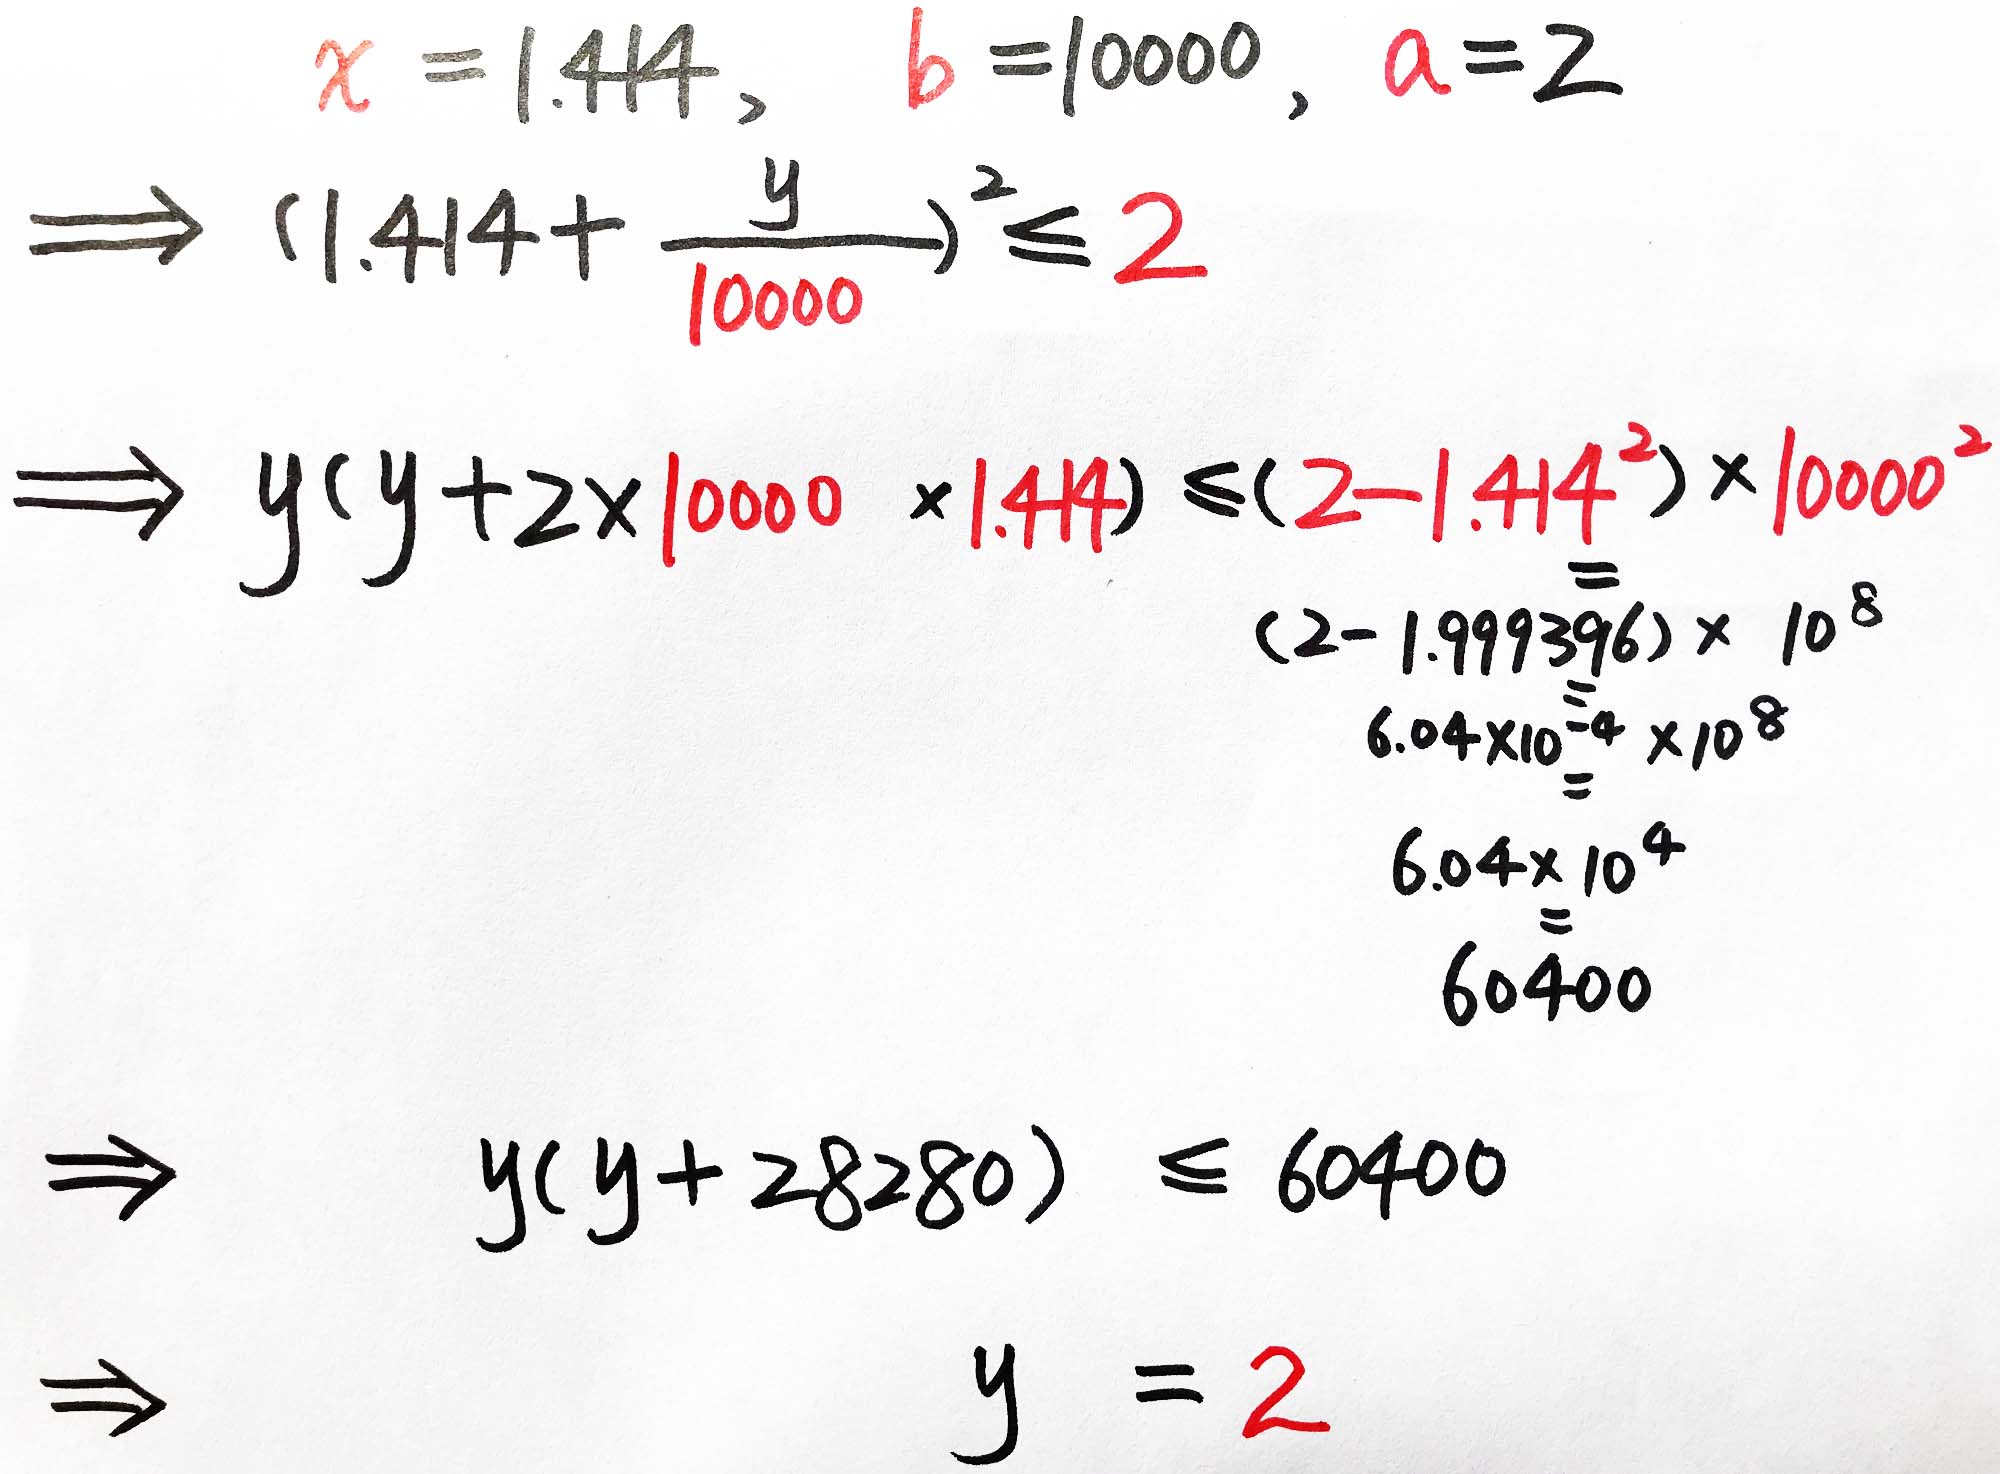 x = 1.414, b = 10000, a = 2
⟹ (1.414 + y/10000)² ≤ 2
⟹ y(y + 2 × 10000 × 1.414) ≤ (2 - 1.414²) × 10000²
=
(2 - 1.999396) × 10⁸
=
6.04 × 10⁻⁴ × 10⁸
=
6.04 × 10⁴
=
60400
⟹ y(y + 28280) ≤ 60400
⟹ y = 2